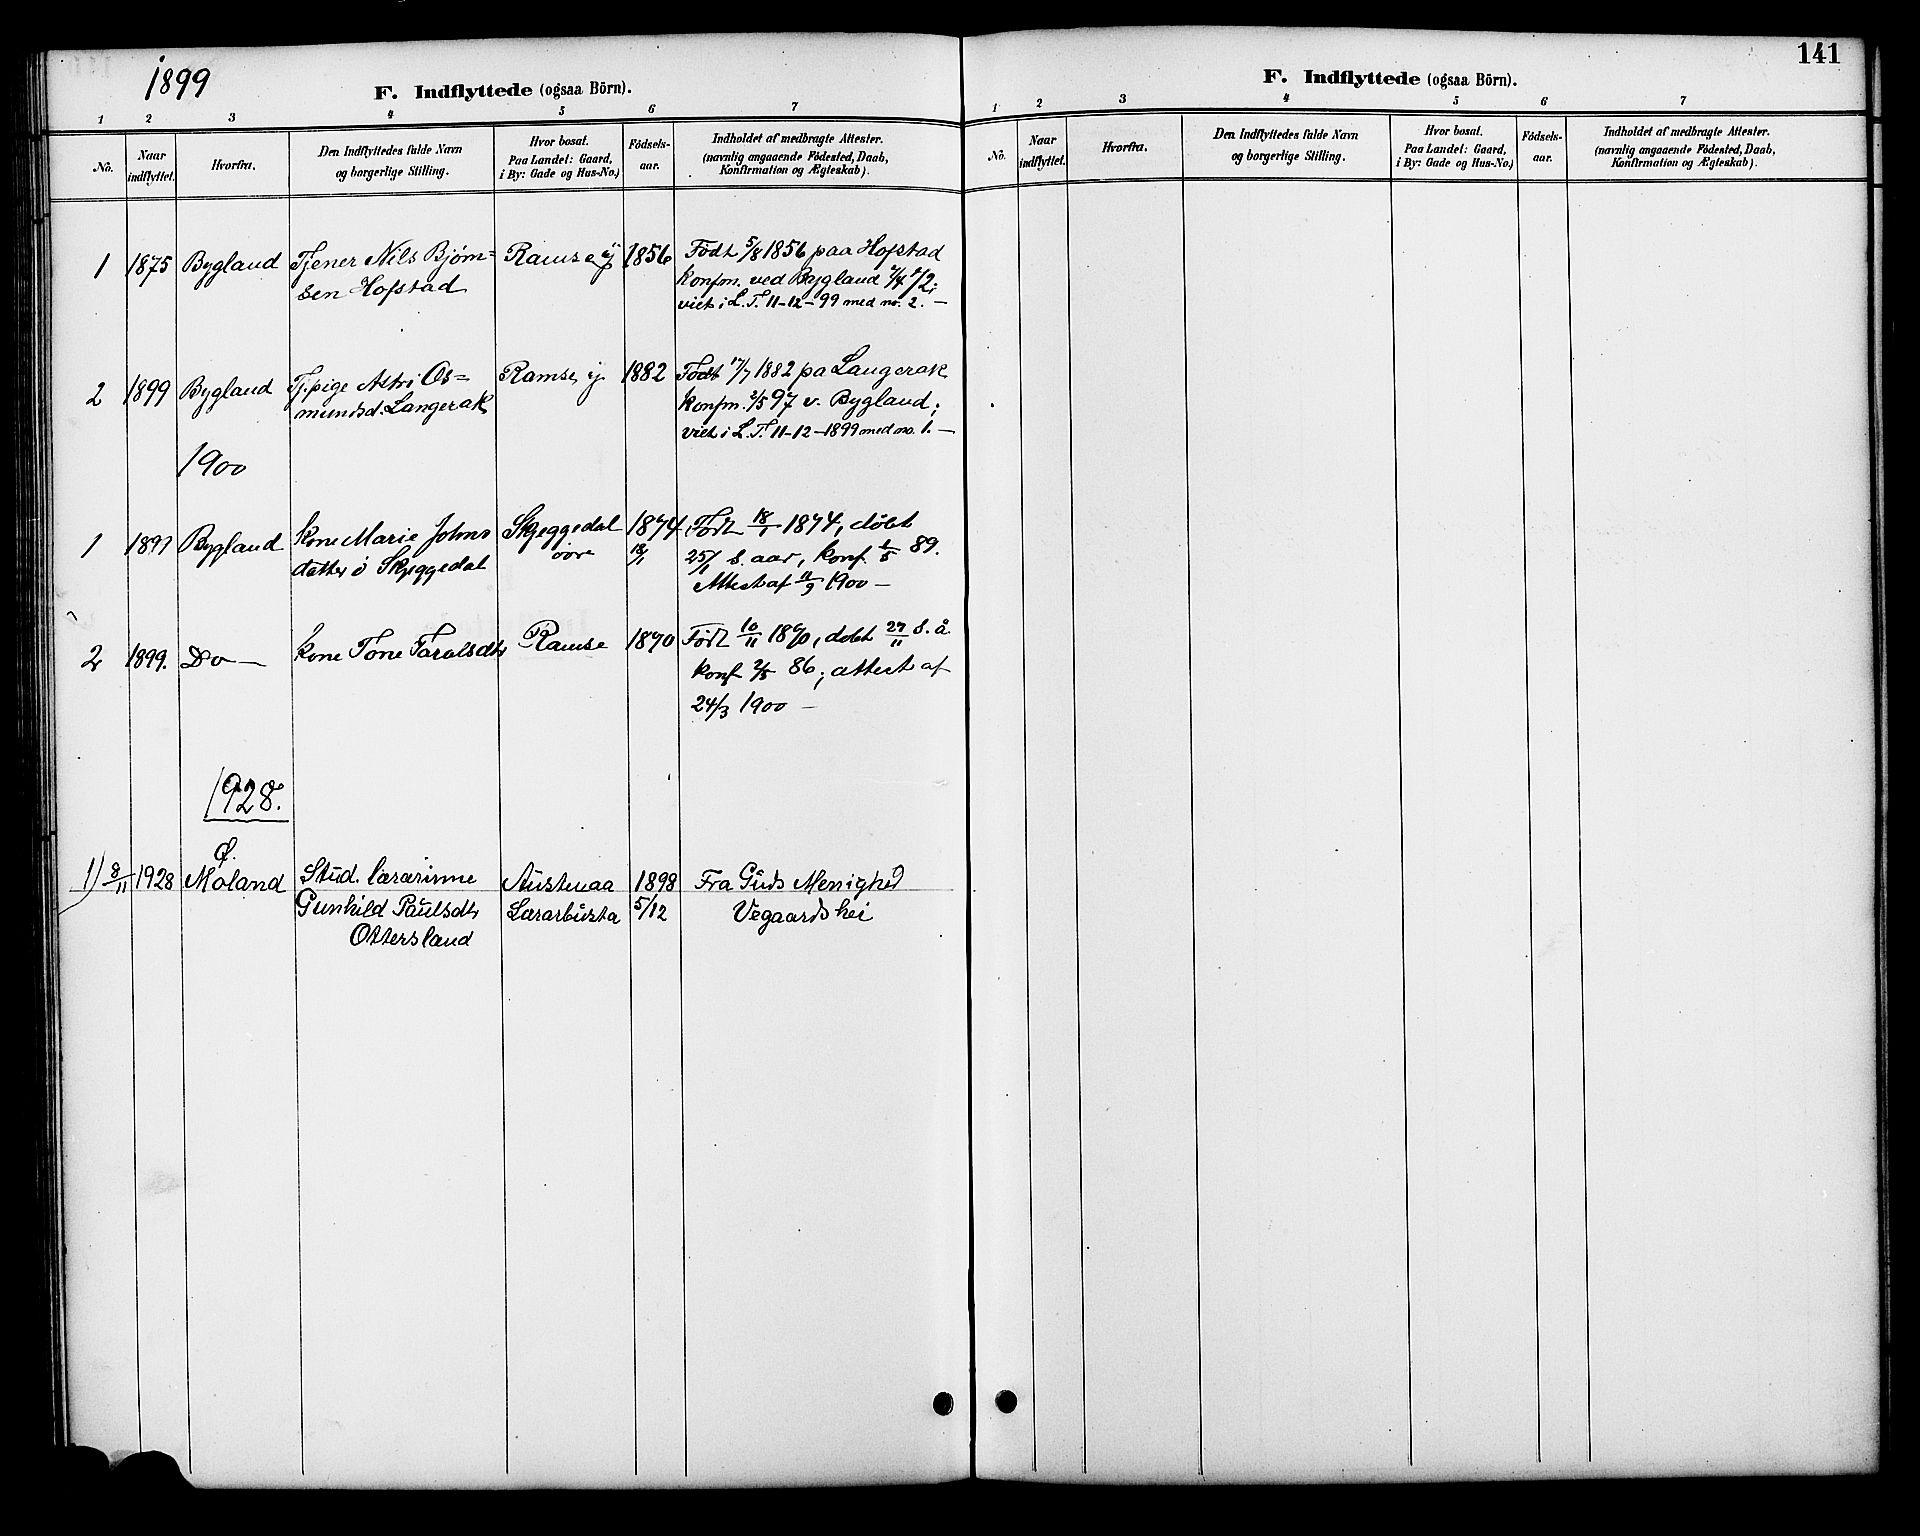 1899
F. Indflyttede (ogsaa Börn).
1 2 3 4 5 6 7
No. Naar indflyttet. Hvorfra. Den Indflyttedes fulde Navn og borgerlige Stilling. Hvor bosat. Paa Landet: Gaard, i By: Gade og Hus-No.) Födsels-aar. Indholdet af medbragte Attester. (navnlig angaaende Födested, Daab, Konfirmation og Ægteskab).
1 1875 Bygland Tjener Nils Bjørn= Ramse y 1856 Født 5/8 1856 paa Hofstad
sen Hofstad konfm. ved Bygland
viet i L. T. 11-12-99 med no. 2. —
2 1899 Bygland Tj.pige Astri Os= Ramse y 1882 Født 17/7 1882 pa Langerak
mundsd. Langerak konfm. 2/5 97 v. Bygland;
viet i L. T. 11-12-1899 med no. 1. —
1900
1 1897 Bygland kone Marie Johns Skjeggedal 1874 Født 18/1 1874, døbt
datter ø Skjeggedal øvre 18/1 25/1 s. aar, konf. 89.
Attest af 11/9 1900 —
2 1899. Do — kone Tone Taralsdtr Ramse 1870 Født 10/11 1870, døbt 27/11 s. å.
konf 2/5 86; attest af
24/3 1900 —
1928.
Ø.
1) 8/11 1928 Moland Stud. lærarinne Austenaa 1898 Fra Guds Menighed
Gunhild Paulsdtr Lærarbusta 5/12 Vegaardshei
Ottersland
141
F. Indflyttede (ogsaa Börn).
1 2 3 4 5 6 7
No. Naar indflyttet. Hvorfra. Den Indflyttedes fulde Navn og borgerlige Stilling. Hvor bosat. Paa Landet: Gaard, i By: Gade og Hus-No.) Födsels-aar. Indholdet af medbragte Attester. (navnlig angaaende Födested, Daab, Konfirmation og Ægteskab).